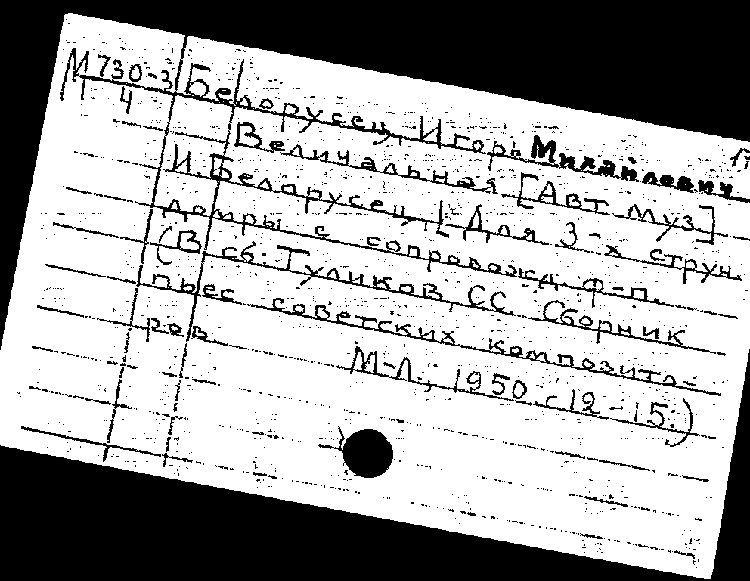 М 730-3
4
Белорусец, Игорь Михайлович
Величальная [Авт муз]
И. Беларусец. Для 3-х струн.
домры с сопровожд ф-п.
(В сб: Туликов, С С. Сборник
пьес советских композито-
ров М-Л., 1950. с 12-15.)